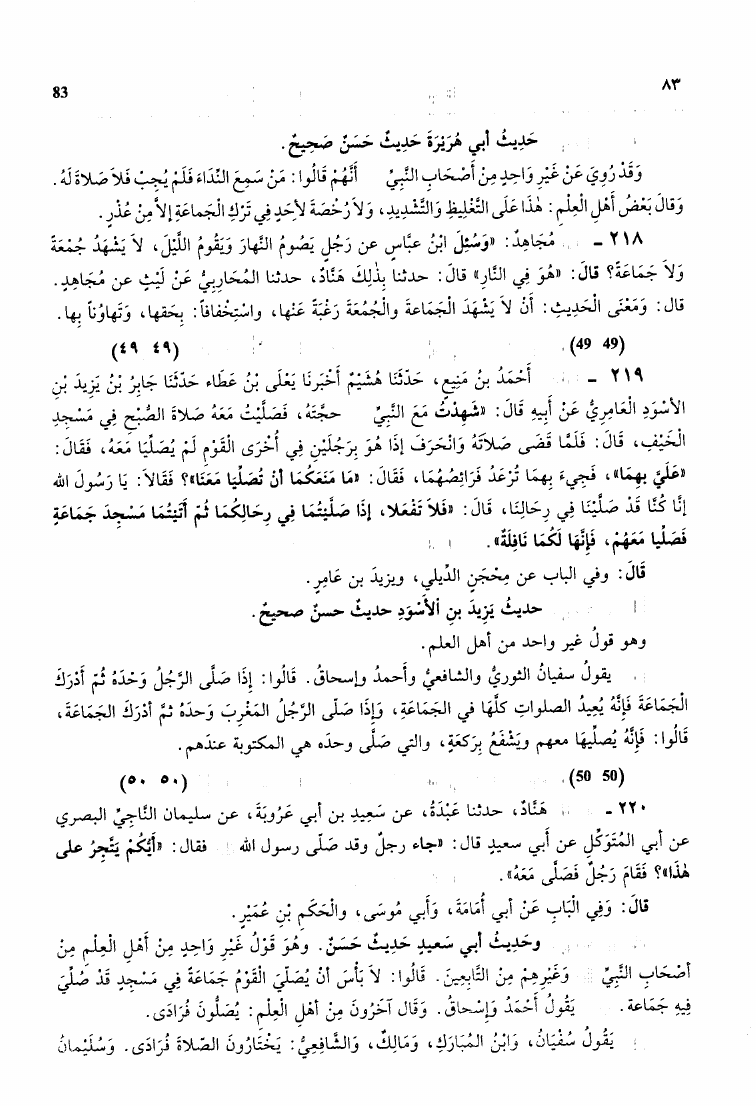 83 ٨٣
حَدِيثُ أبي هُرَيْرَةَ حَدِيثٌ حَسَنٌ صَحِيحٌ.
وَقَدْ رُوِيَ عَنْ غَيْرِ وَاحِدٍ مِنْ أَصْحَابِ النَّبِيِّ أَنَّهُمْ قَالُوا: مَنْ سَمِعَ النِّدَاءَ فَلَمْ يُجِبْ فَلاَ صَلاَةَ لَهُ.
وَقَالَ بَعْضُ أَهْلِ الْعِلْمِ: هٰذَا عَلَى التَّغْلِيظِ وَالتَّشْدِيدِ، وَلاَ رُخْصَةَ لأَحَدٍ فِي تَرْكِ الْجَمَاعَةِ إِلاَّ مِنْ عُذْرٍ.
٢١٨ - مُجَاهِدٌ: «وَسُئِلَ ابْنُ عَبَّاسٍ عن رَجُلٍ يَصُومُ النَّهارَ وَيَقُومُ اللَّيْلَ، لاَ يَشْهَدُ جُمْعَةً
وَلاَ جَمَاعَةً؟ قالَ: «هُوَ فِي النَّارِ» قالَ: حدثنا بِذٰلِكَ هَنَّادٌ، حدثنا المُحَارِبيُّ عَنْ لَيْثٍ عن مُجَاهِدٍ.
قال: وَمَعْنَى الْحَدِيثِ: أَنْ لاَ يَشْهَدَ الْجَمَاعَةَ والْجُمُعَةَ رَغْبَةً عَنْهَا، واسْتِخْفافاً: بِحَقِّها، وَتَهاوُناً بِها.
(49 49) (٤٩ ٤٩)
٢١٩ - أَحْمَدُ بنُ مَنِيعٍ، حَدَّثَنَا هُشَيْمٌ أَخْبَرنَا يَعْلَى بْنُ عَطَاءٍ حَدَّثَنَا جَابِرُ بْنُ يَزِيدَ بْنِ
الأسْوَدِ العَامِرِيُّ عَنْ أَبِيهِ قَالَ: «شَهِدْتُ مَعَ النَّبِيِّ حجَّتَهُ، فَصَلَّيْتُ مَعَهُ صَلاَةَ الصُّبْحِ فِي مَسْجِدِ
الْخَيْفِ، قَالَ: فَلَمَّا قَضَى صَلاَتَهُ وَانْحَرَفَ إذَا هُوَ بِرَجُلَيْنِ فِي أُخْرَى الْقَوْمِ لَمْ يُصَلِّيَا مَعَهُ، فَقَالَ:
«عَلَيَّ بِهِمَا»، فَجِيءَ بِهِمَا تُرْعَدُ فَرَائِصُهُمَا، فَقَالَ: «مَا مَنَعَكُمَا أنْ تُصَلِّيَا مَعَنَا»؟ فَقَالاَ: يَا رَسُولَ الله
إنَّا كُنَّا قَدْ صَلَّيْنَا فِي رِحَالِنَا، قَالَ: «فَلاَ تَفْعَلا، إذَا صَلَّيْتُمَا فِي رِحَالِكُمَا ثُمَّ أتَيْتُمَا مَسْجِدَ جَمَاعَةٍ
فَصَلِّيا مَعَهُمْ، فَإِنَّهَا لَكُمَا نَافِلَةٌ».
قَالَ: وفي الباب عن مِحْجَنٍ الدِّيلي، ويزيدَ بن عَامِرٍ.
حديثُ يَزِيدَ بنِ الأَسْوَدِ حديثٌ حسنٌ صحيحٌ.
وهو قولُ غير واحد من أهل العلم.
يقولُ سفيانُ الثوريُّ والشافعيُّ وأحمدُ وإسحاقُ. قَالُوا: إِذَا صَلَّى الرَّجُلُ وَحْدَهُ ثُمَّ أدْرَكَ
الْجَمَاعَةَ فَإِنَّهُ يُعِيدُ الصلواتِ كلَّها في الْجَمَاعَةِ، وَإِذَا صَلّى الرَّجُلُ المَغْرِبَ وَحدَهُ ثمَّ أدْرَكَ الجَمَاعَةَ،
قَالُوا: فَإِنَّهُ يُصلِّيهَا معهم وَيَشْفَعُ بِرَكعَةٍ، والتي صَلَّى وحدَه هي المكتوبة عندَهم.
(50 50) (٥٠ ٥٠)
٢٢٠ - هَنَّادٌ، حدثنا عَبْدَةُ، عن سَعِيدِ بن أبي عَرُوبَةَ، عن سليمان النَّاجِيِّ البصري
عن أبي المُتَوَكِّلِ عن أبي سعيدٍ قال: «جاء رجلٌ وقد صَلَّى رسول الله فقال: «أَيُّكُمْ يَتَّجِرُ على
هٰذَا»؟ فَقَامَ رَجُلٌ فَصَلَّى مَعَهُ».
قالَ: وَفِي الْبَابِ عَنْ أبي أُمَامَةَ، وَأبي مُوسَى، والْحَكَمِ بْنِ عُمَيْرٍ.
وحَدِيثُ أبي سَعيدٍ حَدِيثٌ حَسَنٌ. وهُوَ قَوْلُ غَيْرِ وَاحِدٍ مِنْ أَهْلِ الْعِلْمِ مِنْ
أَصْحَابِ النَّبِيِّ وَغَيْرِهِمْ مِنَ التَّابِعِينَ. قَالُوا: لاَ بَأْسَ أنْ يُصَلِّيَ الْقَوْمُ جَمَاعَةً فِي مَسْجِدٍ قَدْ صُلِّيَ
فِيهِ جَمَاعة. يَقُولُ أَحْمَدُ وَإِسْحاقُ. وَقَال آخَرُونَ مِنْ أهْلِ الْعِلْمِ: يُصَلُّونَ فُرَادَى.
يَقُولُ سُفْيَانُ، وَابْنُ المُبَارَكِ، وَمَالِكٌ، وَالشَّافِعِيُّ: يَخْتَارُونَ الصَّلاةَ فُرَادَى. وَسُلَيْمَانُ